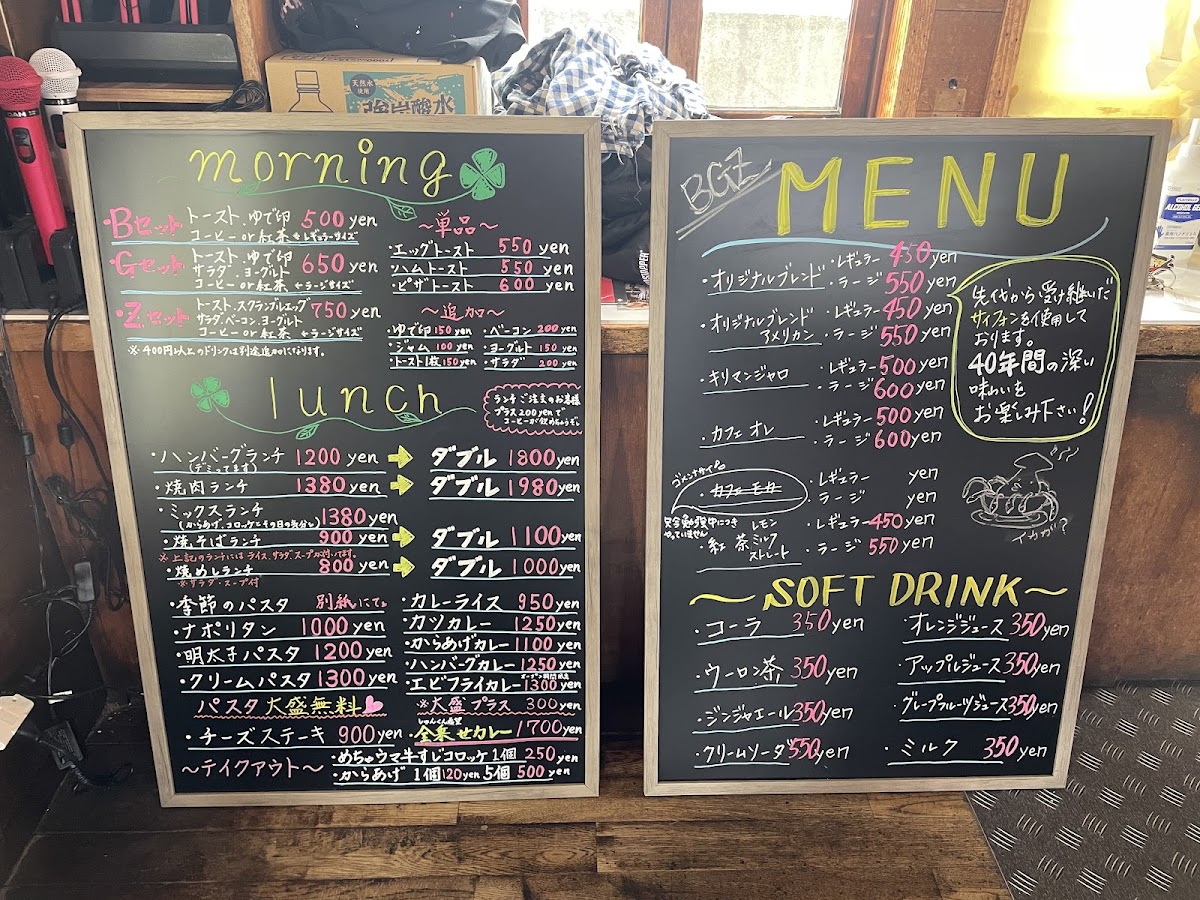 天然水使用
強炭酸水
DAM
morning
・Bセット トースト、ゆで卵 500 yen
コーヒー or 紅茶 ←レギュラーサイズ
・Gセット トースト、ゆで卵 650 yen
サラダ・ヨーグルト
コーヒー or 紅茶 ←ラージサイズ
・Zセット トースト、スクランブルエッグ 750 yen
サラダ、ベーコン、ヨーグルト
コーヒー or 紅茶 ←ラージサイズ
※400円以上のドリンクは別途追加になります。
〜単品〜
・エッグトースト 550 yen
・ハムトースト 550 yen
・ピザトースト 600 yen
〜追加〜
・ゆで卵 150 yen ・ベーコン 200 yen
・ジャム 100 yen ・ヨーグルト 150 yen
・トースト1枚 150 yen ・サラダ 200 yen
lunch
ランチご注文のお客様
プラス200yenで
コーヒーが飲めちゃうぞ
・ハンバーグランチ 1200 yen → ダブル 1800 yen
(デミってます)
・焼肉ランチ 1380 yen → ダブル 1980 yen
・ミックスランチ 1380 yen
(からあげ、コロッケとその日の気分)
・焼そばランチ 900 yen → ダブル 1100 yen
※上記のランチにはライス、サラダ、スープが付いてます。
・焼めしランチ 800 yen → ダブル 1000 yen
※サラダ・スープ付
・季節のパスタ 別紙にて。
・ナポリタン 1000 yen
・明太子パスタ 1200 yen
・クリームパスタ 1300 yen
パスタ大盛無料
・チーズステーキ 900 yen
・カレーライス 950 yen
・カツカレー 1250 yen
・からあげカレー 1100 yen
・ハンバーグカレー 1250 yen
・エビフライカレー 1300 yen
※大盛プラス 300 yen
しゅんくん希望
・全乗せカレー 1700 yen
〜テイクアウト〜
・めちゃウマ牛すじコロッケ 1個 250 yen
・からあげ 1個 120 yen 5個 500 yen
BGZ
MENU
・オリジナルブレンド ・レギュラー 450 yen
・ラージ 550 yen
・オリジナルブレンド アメリカン ・レギュラー 450 yen
・ラージ 550 yen
・キリマンジャロ ・レギュラー 500 yen
・ラージ 600 yen
・カフェオレ ・レギュラー 500 yen
・ラージ 600 yen
先代から受け継いだ
サイフォンを使用して
おります。
40年間の深い
味わいを
お楽しみ下さい!
ゴメンナサイ
・カフェモカ ・レギュラー yen
・ラージ yen
やっていません
・紅茶 レモン ミルク ストレート ・レギュラー 450 yen
・ラージ 550 yen
イカガ?
〜SOFT DRINK〜
・コーラ 350 yen ・オレンジジュース 350 yen
・ウーロン茶 350 yen ・アップルジュース 350 yen
・ジンジャエール 350 yen ・グレープフルーツジュース 350 yen
・クリームソーダ 550 yen ・ミルク 350 yen
ALCOHOL GEL